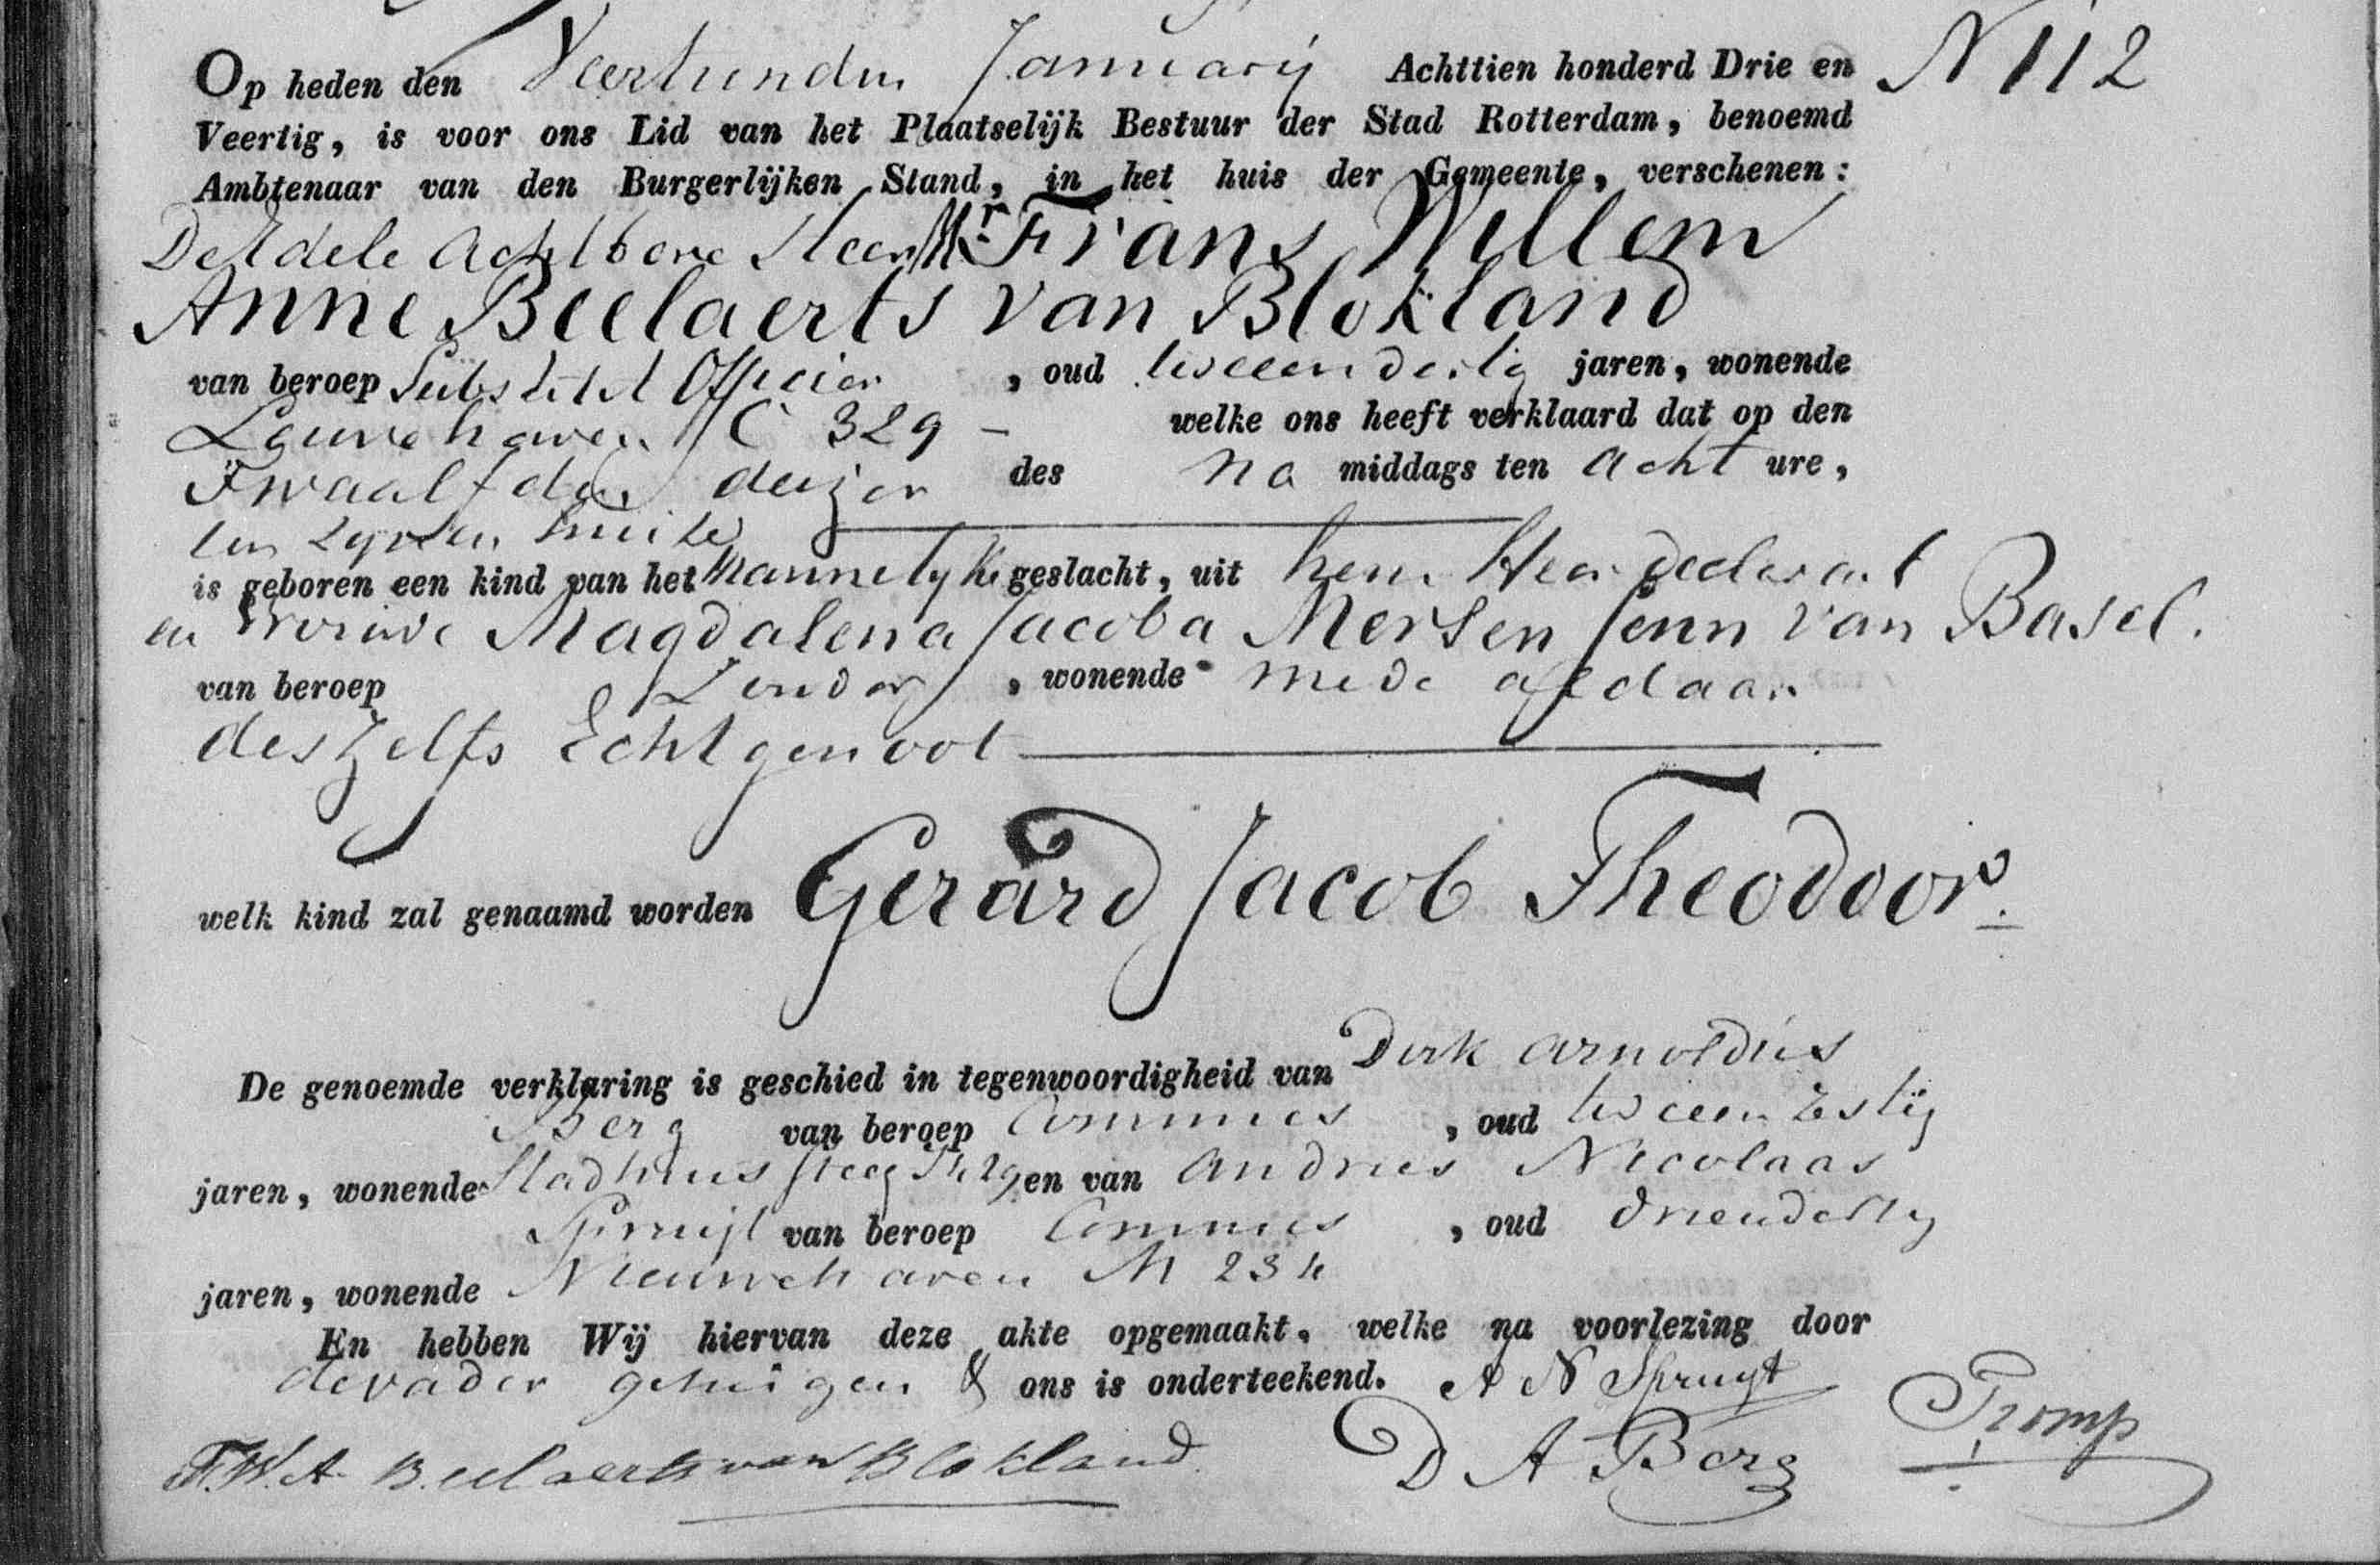 Op heden den Veertienden Januarij Achttien honderd Drie en N 112
Veertig, is voor ons Lid van het Plaatselijk Bestuur der Stad Rotterdam, benoemd
Ambtenaar van den Burgerlijken Stand, in het huis der Gemeente, verschenen:
De Edele Achtbare Heer Mr. Frans Willem
Anne Beelaerts van Blokland
van beroep Substitut Officier, oud tweeendertig jaren, wonende
Leuvehaven C 329 – welke ons heeft verklaard dat op den
Twaalfden dezer des na middags ten acht ure,
ten zynen huize
is geboren een kind van het Mannelyke geslacht, uit hem Heer declarant
en Vrouwe Magdalena Jacoba Mersen Senn van Basel.
van beroep Zonder, wonende mede aldaar
deszelfs Echtgenoot
welk kind zal genaamd worden Gerard Jacob Theodoor.
De genoemde verklaring is geschied in tegenwoordigheid van Dirk Arnoldus
Berg van beroep Commies, oud tweeenzestig
jaren, wonende Stadhuis steeg en van Andries Nicolaas
Spruijt van beroep Commies, oud drieendertig
jaren, wonende Nieuwehaven M
En hebben Wij hiervan deze akte opgemaakt, welke na voorlezing door
de vader getuigen & ons is onderteekend. A N Spruyt
F.W.A. Beelaerts van Blokland D A Berg Tromp